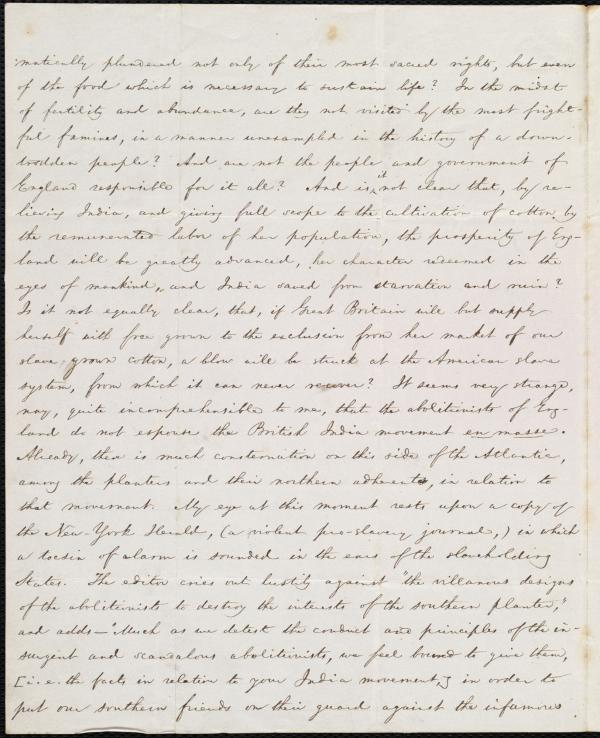 matically plundered not only of their most sacred rights, but even
of the food which is necessary to sustain life? In the midst
of fertility and abundance, are they not visited by the most fright-
ful famines, in a manner unexampled in the history of a down-
trodden people? And are not the people and government of
England responsible for it all? And is it not clear that, by re-
lieving India, and giving full scope to the cultivation of cotton by
the remunerated labor of her population, the prosperity of Eng-
land will be greatly advanced, her character redeemed in the
eyes of mankind, and India saved from starvation and ruin?
Is it not equally clear, that, if Great Britain will but supply
herself with free grown to the exclusion from her market of our
slave-grown cotton, a blow will be struck at the American slave
system, from which it can never recover? It seems very strange,
nay, quite incomprehensible to me, that the abolitionists of Eng-
land do not espouse the British India movement en masse.
Already, there is much consternation on this side of the Atlantic,
among the planters and their northern adherents, in relation to
that movement. My eye at this moment rests upon a copy of
the New-York Herald, (a violent pro-slavery journal,) in which
a tocsin of alarm is sounded in the ears of the slaveholding
States. The editor cries out lustily against "the villanous designs
of the abolitionists to destroy the interests of the southern planter,"
and adds—"Much as we detest the conduct and principles of the in-
surgent and scandalous abolitionists, we feel bound to give them,
[i.e. the facts in relation to your India movement,] in order to
put our southern friends on their guard against the infamous